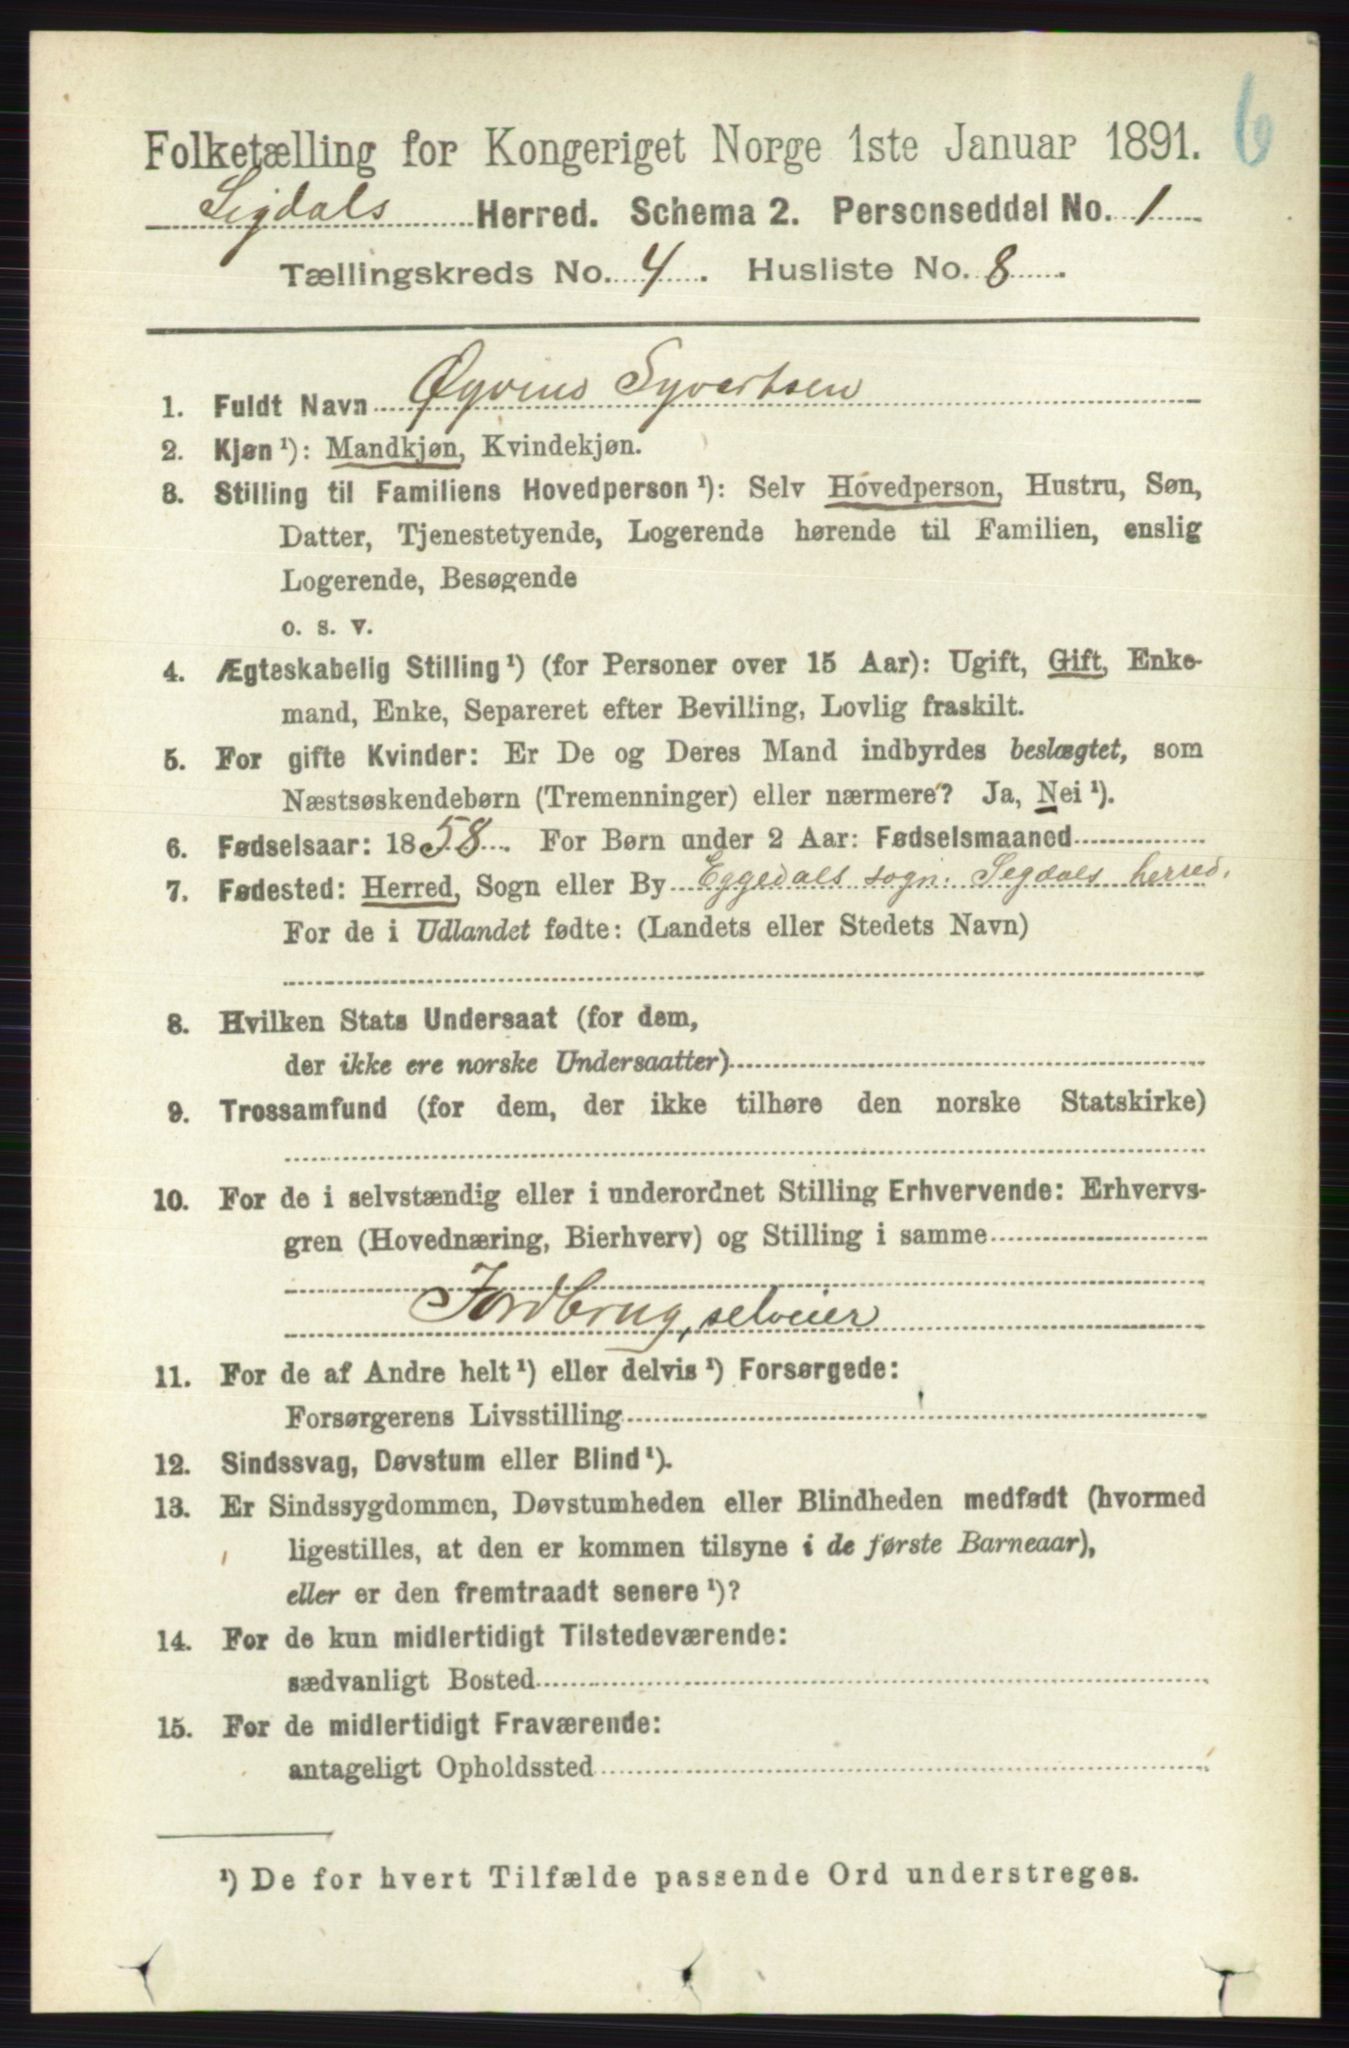 6
Folketælling for Kongeriget Norge 1ste Januar 1891.
Sigdals Herred. Schema 2. Personseddel No. 1
Tællingskreds No. 4. Husliste No. 8.
1. Fuldt Navn Øyvind Syvertsen
2. Kjøn¹): Mandkjøn, Kvindekjøn.
3. Stilling til Familiens Hovedperson¹): Selv Hovedperson, Hustru, Søn,
Datter, Tjenestetyende, Logerende hørende til Familien, enslig
Logerende, Besøgende
o. s. v.
4. Ægteskabelig Stilling¹) (for Personer over 15 Aar): Ugift, Gift, Enke-
mand, Enke, Separeret efter Bevilling, Lovlig fraskilt.
5. For gifte Kvinder: Er De og Deres Mand indbyrdes beslægtet, som
Næstsøskendebørn (Tremenninger) eller nærmere? Ja, Nei¹).
6. Fødselsaar: 1858. For Børn under 2 Aar: Fødselsmaaned
7. Fødested: Herred, Sogn eller By Eggedals sogn. Sigdals herred.
For de i Udlandet fødte: (Landets eller Stedets Navn)
8. Hvilken Stats Undersaat (for dem,
der ikke ere norske Undersaatter)
9. Trossamfund (for dem, der ikke tilhøre den norske Statskirke)
10. For de i selvstændig eller i underordnet Stilling Erhvervende: Erhvervs-
gren (Hovednæring, Bierhverv) og Stilling i samme
Jordbrug, selveier
11. For de af Andre helt¹) eller delvis¹) Forsørgede:
Forsørgerens Livsstilling
12. Sindssvag, Døvstum eller Blind¹).
13. Er Sindssygdommen, Døvstumheden eller Blindheden medfødt (hvormed
ligestilles, at den er kommen tilsyne i de første Barneaar),
eller er den fremtraadt senere¹)?
14. For de kun midlertidigt Tilstedeværende:
sædvanligt Bosted
15. For de midlertidigt Fraværende:
antageligt Opholdssted
¹) De for hvert Tilfælde passende Ord understreges.